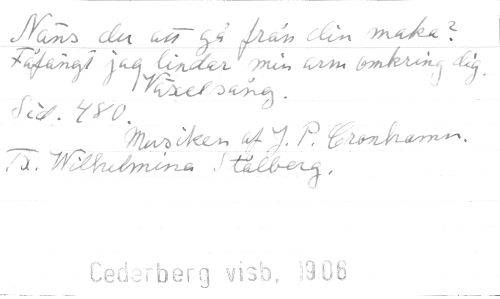 Näns du att gå från din maka?
Fåfängt jag lindar min arm omkring dig.
Växelsång.
Sid. 480.
Musiken af J. P. Cronhamn.
Tx. Wilhelmina Stålberg.
Cederberg visb, 1906